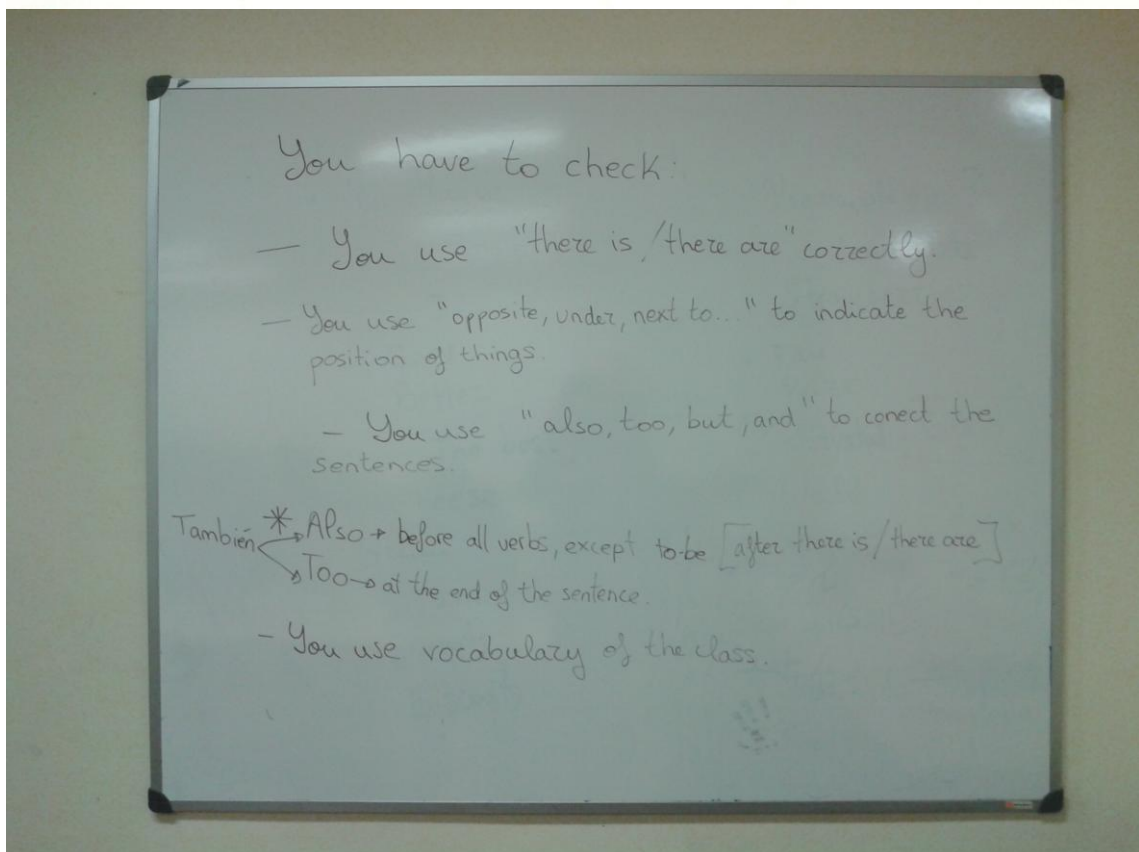 You have to check:
— You use "there is/there are" correctly.
— You use "opposite, under, next to..." to indicate the
position of things.
- You use "also, too, but, and" to conect the
sentences.
También * Also → before all verbs, except to be [after there is/there are]
Too → at the end of the sentence.
- You use vocabulary of the class.